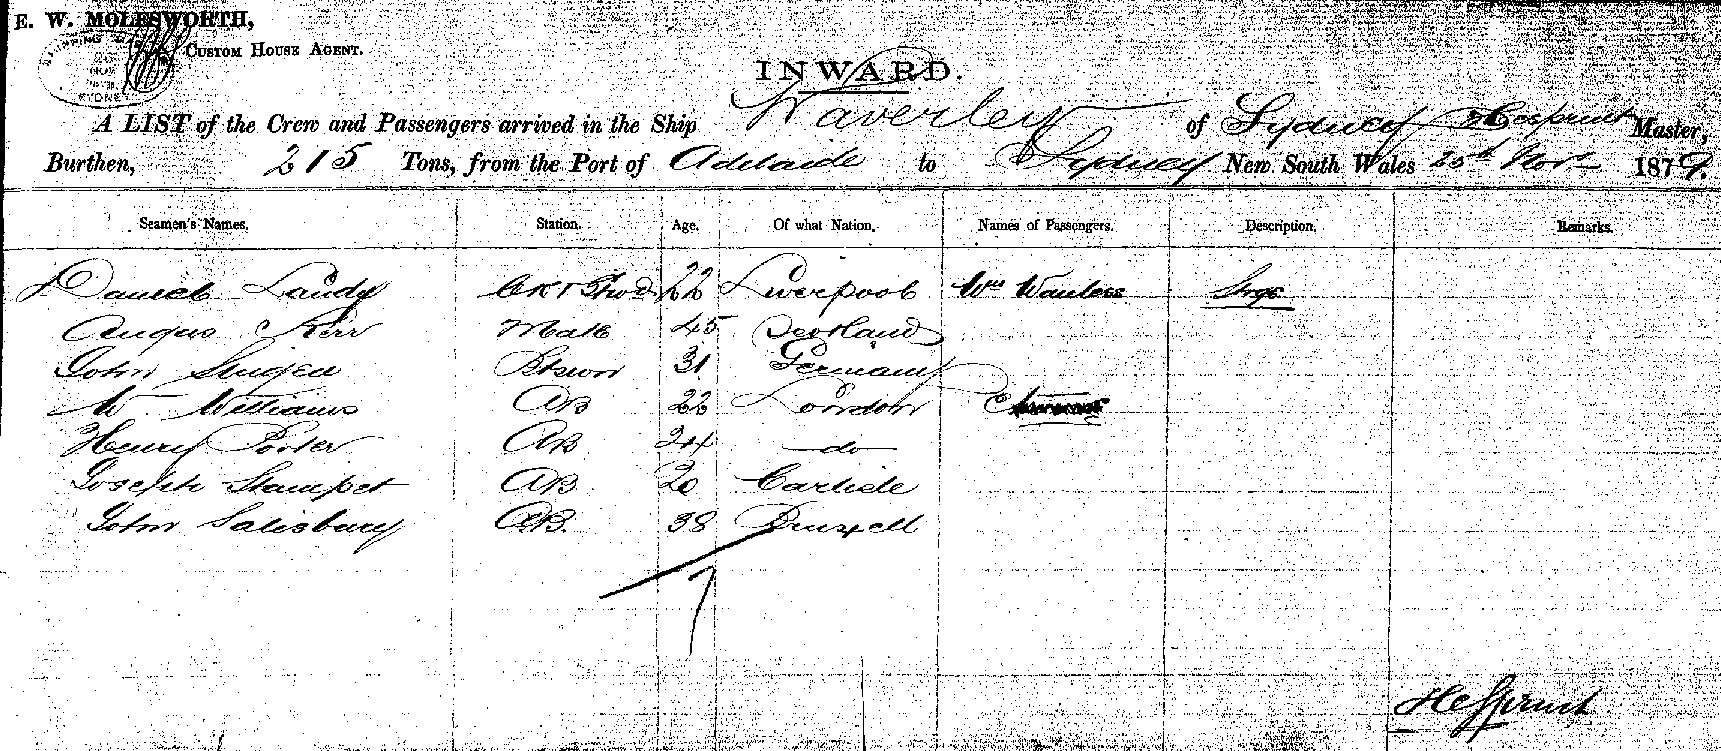 E. W. MOLESWORTH,
CUSTOM HOUSE AGENT.
SHIPPING
SYDNEY
INWARD.
A LIST of the Crew and Passengers arrived in the Ship Waverley of Sydney Master,
Burthen, 215 Tons, from the Port of Adelaide to Sydney New South Wales 25th Novr 1879.
Seamen's Names. Station. Age. Of what Nation. Names of Passengers. Description. Remarks.
Daniel Landy 22 Liverpool Wm Wanless
Angus Kerr Mate 45 Scotland
John Stewd 31 Germany
W. Williams AB 22 London
Henry Porter AB 24 do
Joseph AB 20 Carlisle
John Salisbury AB. 38
7